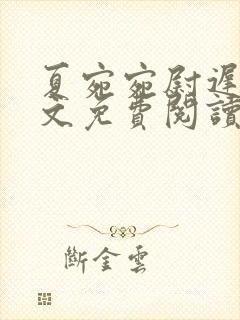 夏宛宛尉遲
文免費閱讀
斷金雲